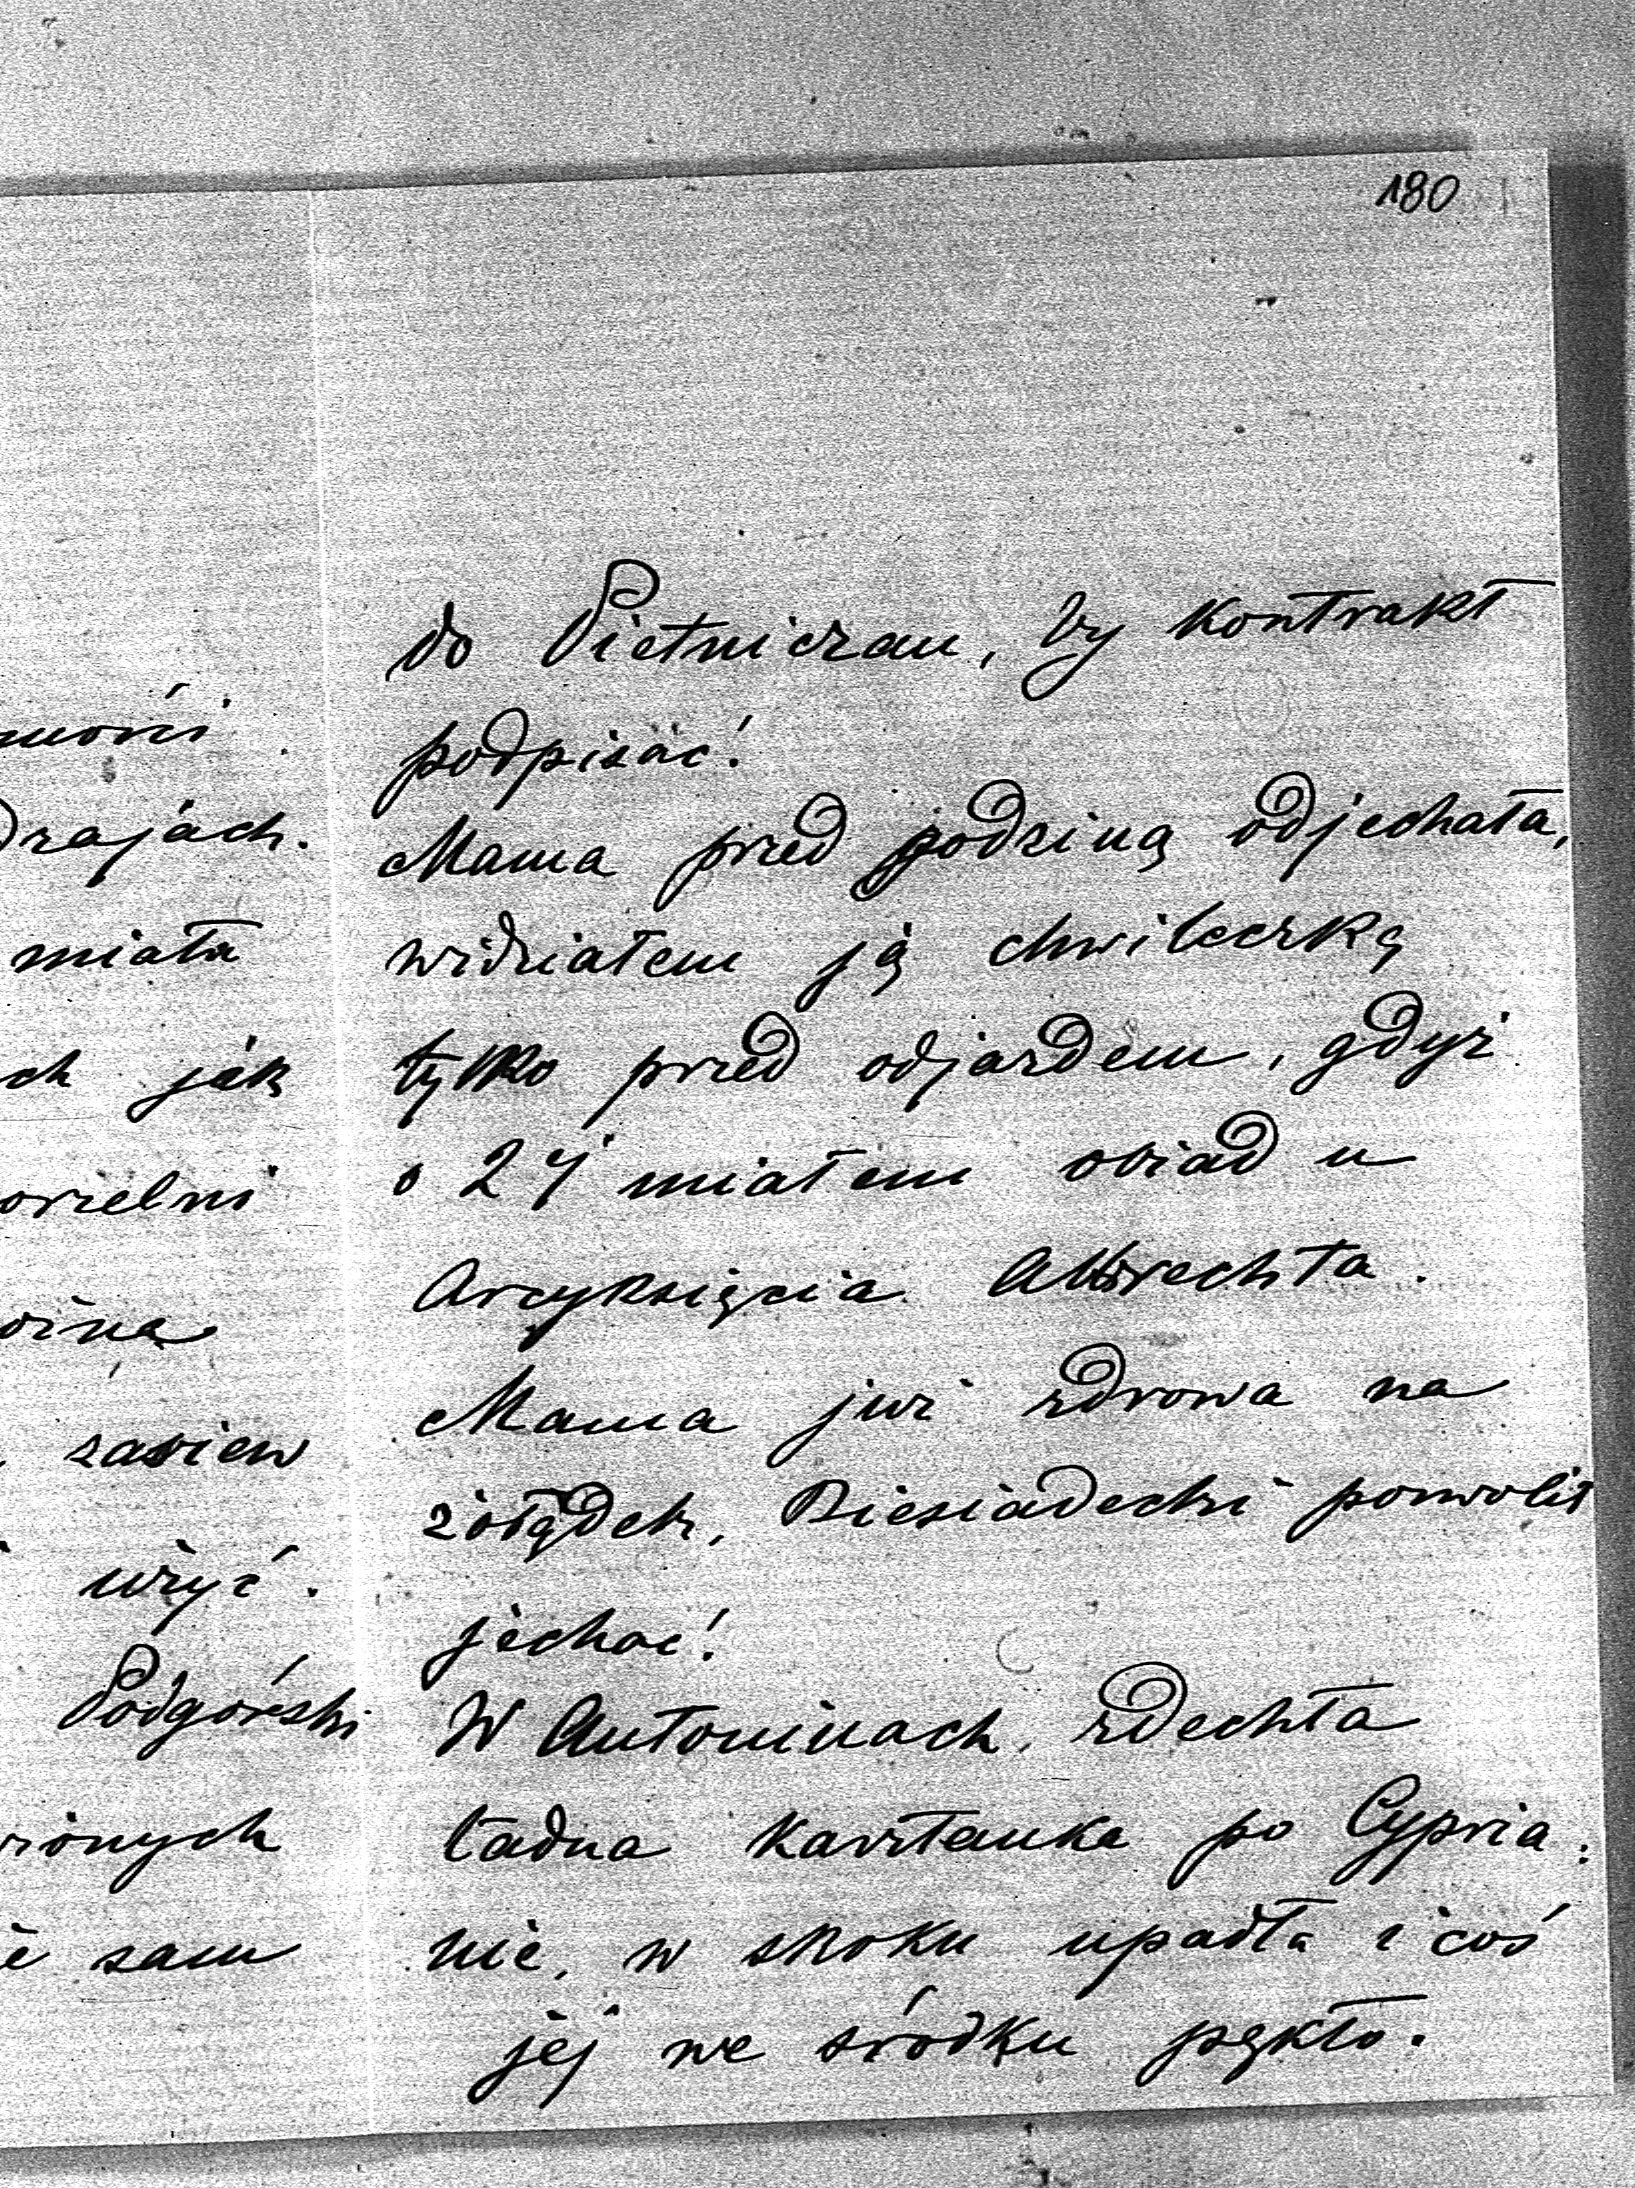 180
do Pietniczan, by kontrakt
podpisać!
Mama przed godziną odjechała,
widziałem ją chwileczkę
tylko przed odjazdem, gdyż
o 2 ½ miałem obiad u
Arcyksięcia Albrechta.
Mama już zdrowa na
żołądek, Biesiadecki pozwolił
jechać!
W Antoninach zdechła
ładna kasztanka po Cypria:
nie, w skoku upadła i coś
jej we środku pękło.
drajach.
miała
jak
zasiew
użyć.
Podgórski
sam